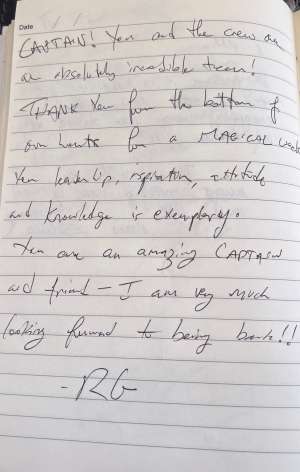 Date
CAPTAIN! You and the crew are
an absolutely incredible team!
THANK You from the bottom of
our hearts for a MAGICAL week
You leadership, inspiration, attitude
and knowledge is exemplary.
You are an amazing CAPTAIN
and friend - I am very much
looking forward to being back!!
- RG